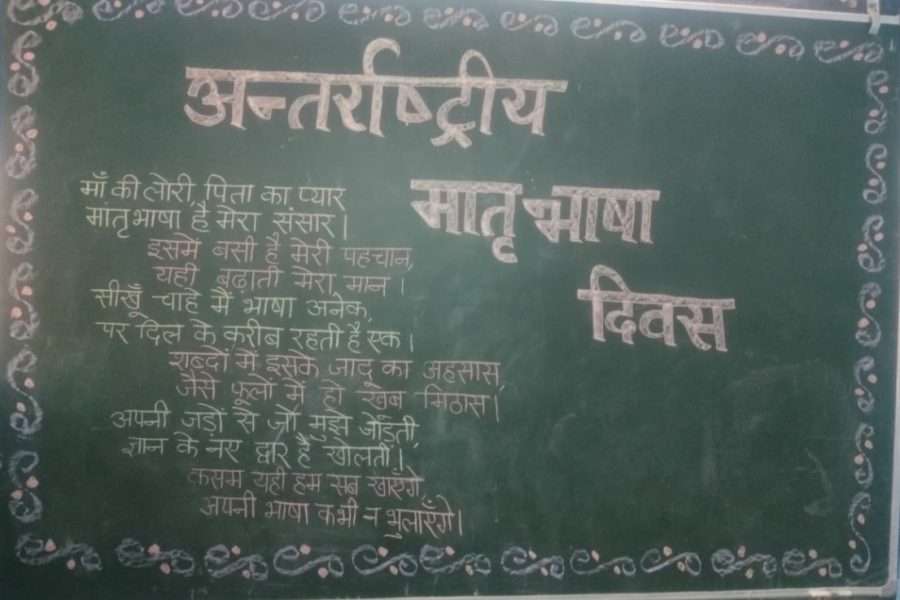 अन्तर्राष्ट्रीय
मातृभाषा
दिवस
माँ की लोरी, पिता का प्यार
मातृभाषा है मेरा संसार।
इसमें बसी है मेरी पहचान,
यही बढ़ाती मेरा मान।
सीखूँ चाहे मैं भाषा अनेक,
पर दिल के करीब रहती है एक।
शब्दों में इसके जादू का अहसास,
जैसे फूलों में हो खूब मिठास।
अपनी जड़ों से जो मुझे जोड़ती,
ज्ञान के नए द्वार है खोलती।
कसम यही हम सब खाएँगे,
अपनी भाषा कभी न भुलाएँगे।